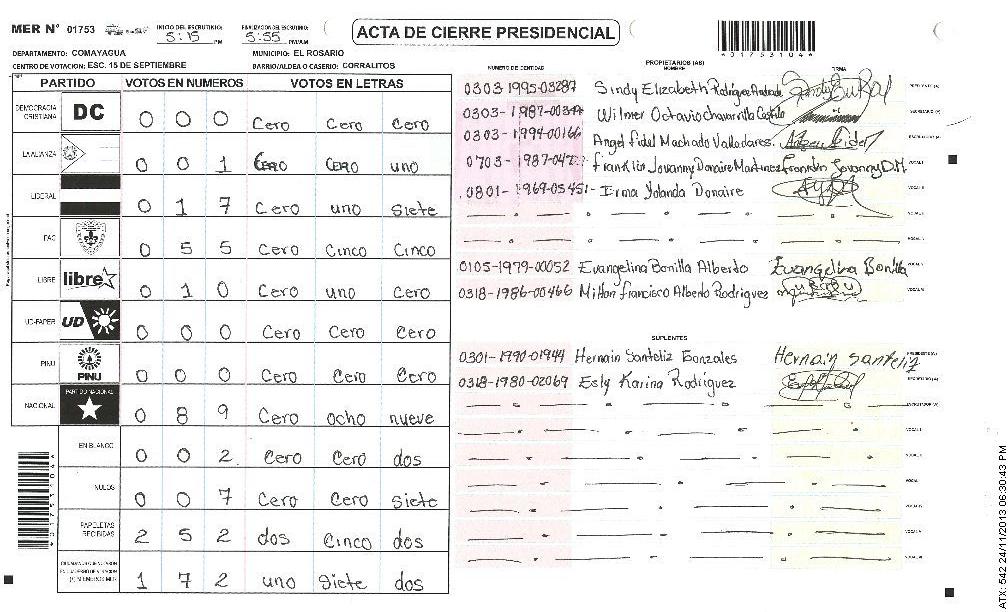 MER Nº 01753
INICIO DEL ESCRUTINIO: 5:15 PM
FINALIZACION DEL ESCRUTINIO: 5:55 PM/AM
ACTA DE CIERRE PRESIDENCIAL
*01753104*
DEPARTAMENTO: COMAYAGUA
MUNICIPIO: EL ROSARIO
CENTRO DE VOTACION: ESC. 15 DE SEPTIEMBRE
BARRIO/ALDEA O CASERIO: CORRALITOS
PARTIDO VOTOS EN NUMEROS VOTOS EN LETRAS
DEMOCRACIA CRISTIANA DC 0 0 0 Cero Cero Cero
LA ALIANZA 0 0 1 Cero Cero uno
LIBERAL 0 1 7 Cero uno siete
FAC 0 5 5 Cero Cinco Cinco
LIBRE libre 0 1 0 Cero uno Cero
UD-FAPER UD 0 0 0 Cero Cero Cero
PINU PINU 0 0 0 Cero Cero Cero
NACIONAL PARTIDO NACIONAL 0 8 9 Cero ocho nueve
EN BLANCO 0 0 2 Cero Cero dos
NULOS 0 0 7 Cero Cero siete
PAPELETAS RECIBIDAS 2 5 2 dos Cinco dos
1 7 2 uno siete dos
NUMERO DE IDENTIDAD
PROPIETARIOS (AS)
NOMBRE
FIRMA
0303 1995-03287 Sindy Elizabeth Rodriguez Andrade PRESIDENTE (A)
0303-1987-00344 Wilmer Octavio Chavarria Castillo SECRETARIO (A)
0303-1994-00166 Angel Fidel Machado Valladares. Angel Fidel ESCRUTADOR (A)
0703-1987-04 Franklin Jovanny Donaire Martinez Franklin Jovanny D.M VOCAL I
0801-1969-05451- Irma Yolanda Donaire VOCAL II
0105-1979-00052 Evangelina Bonilla Alberto Evangelina Bonilla
0318-1986-00466 Milton Francisco Alberto Rodriguez
SUPLENTES
0301-1990-01944 Hernain Santeliz Gonzales Hernain Santeliz PRESIDENTE (A)
0318-1980-02069 Esly Karina Rodriguez SECRETARIO (A)
ESCRUTADOR (A)
VOCAL I
ATX: 542 24/11/2013 06:30:43 PM